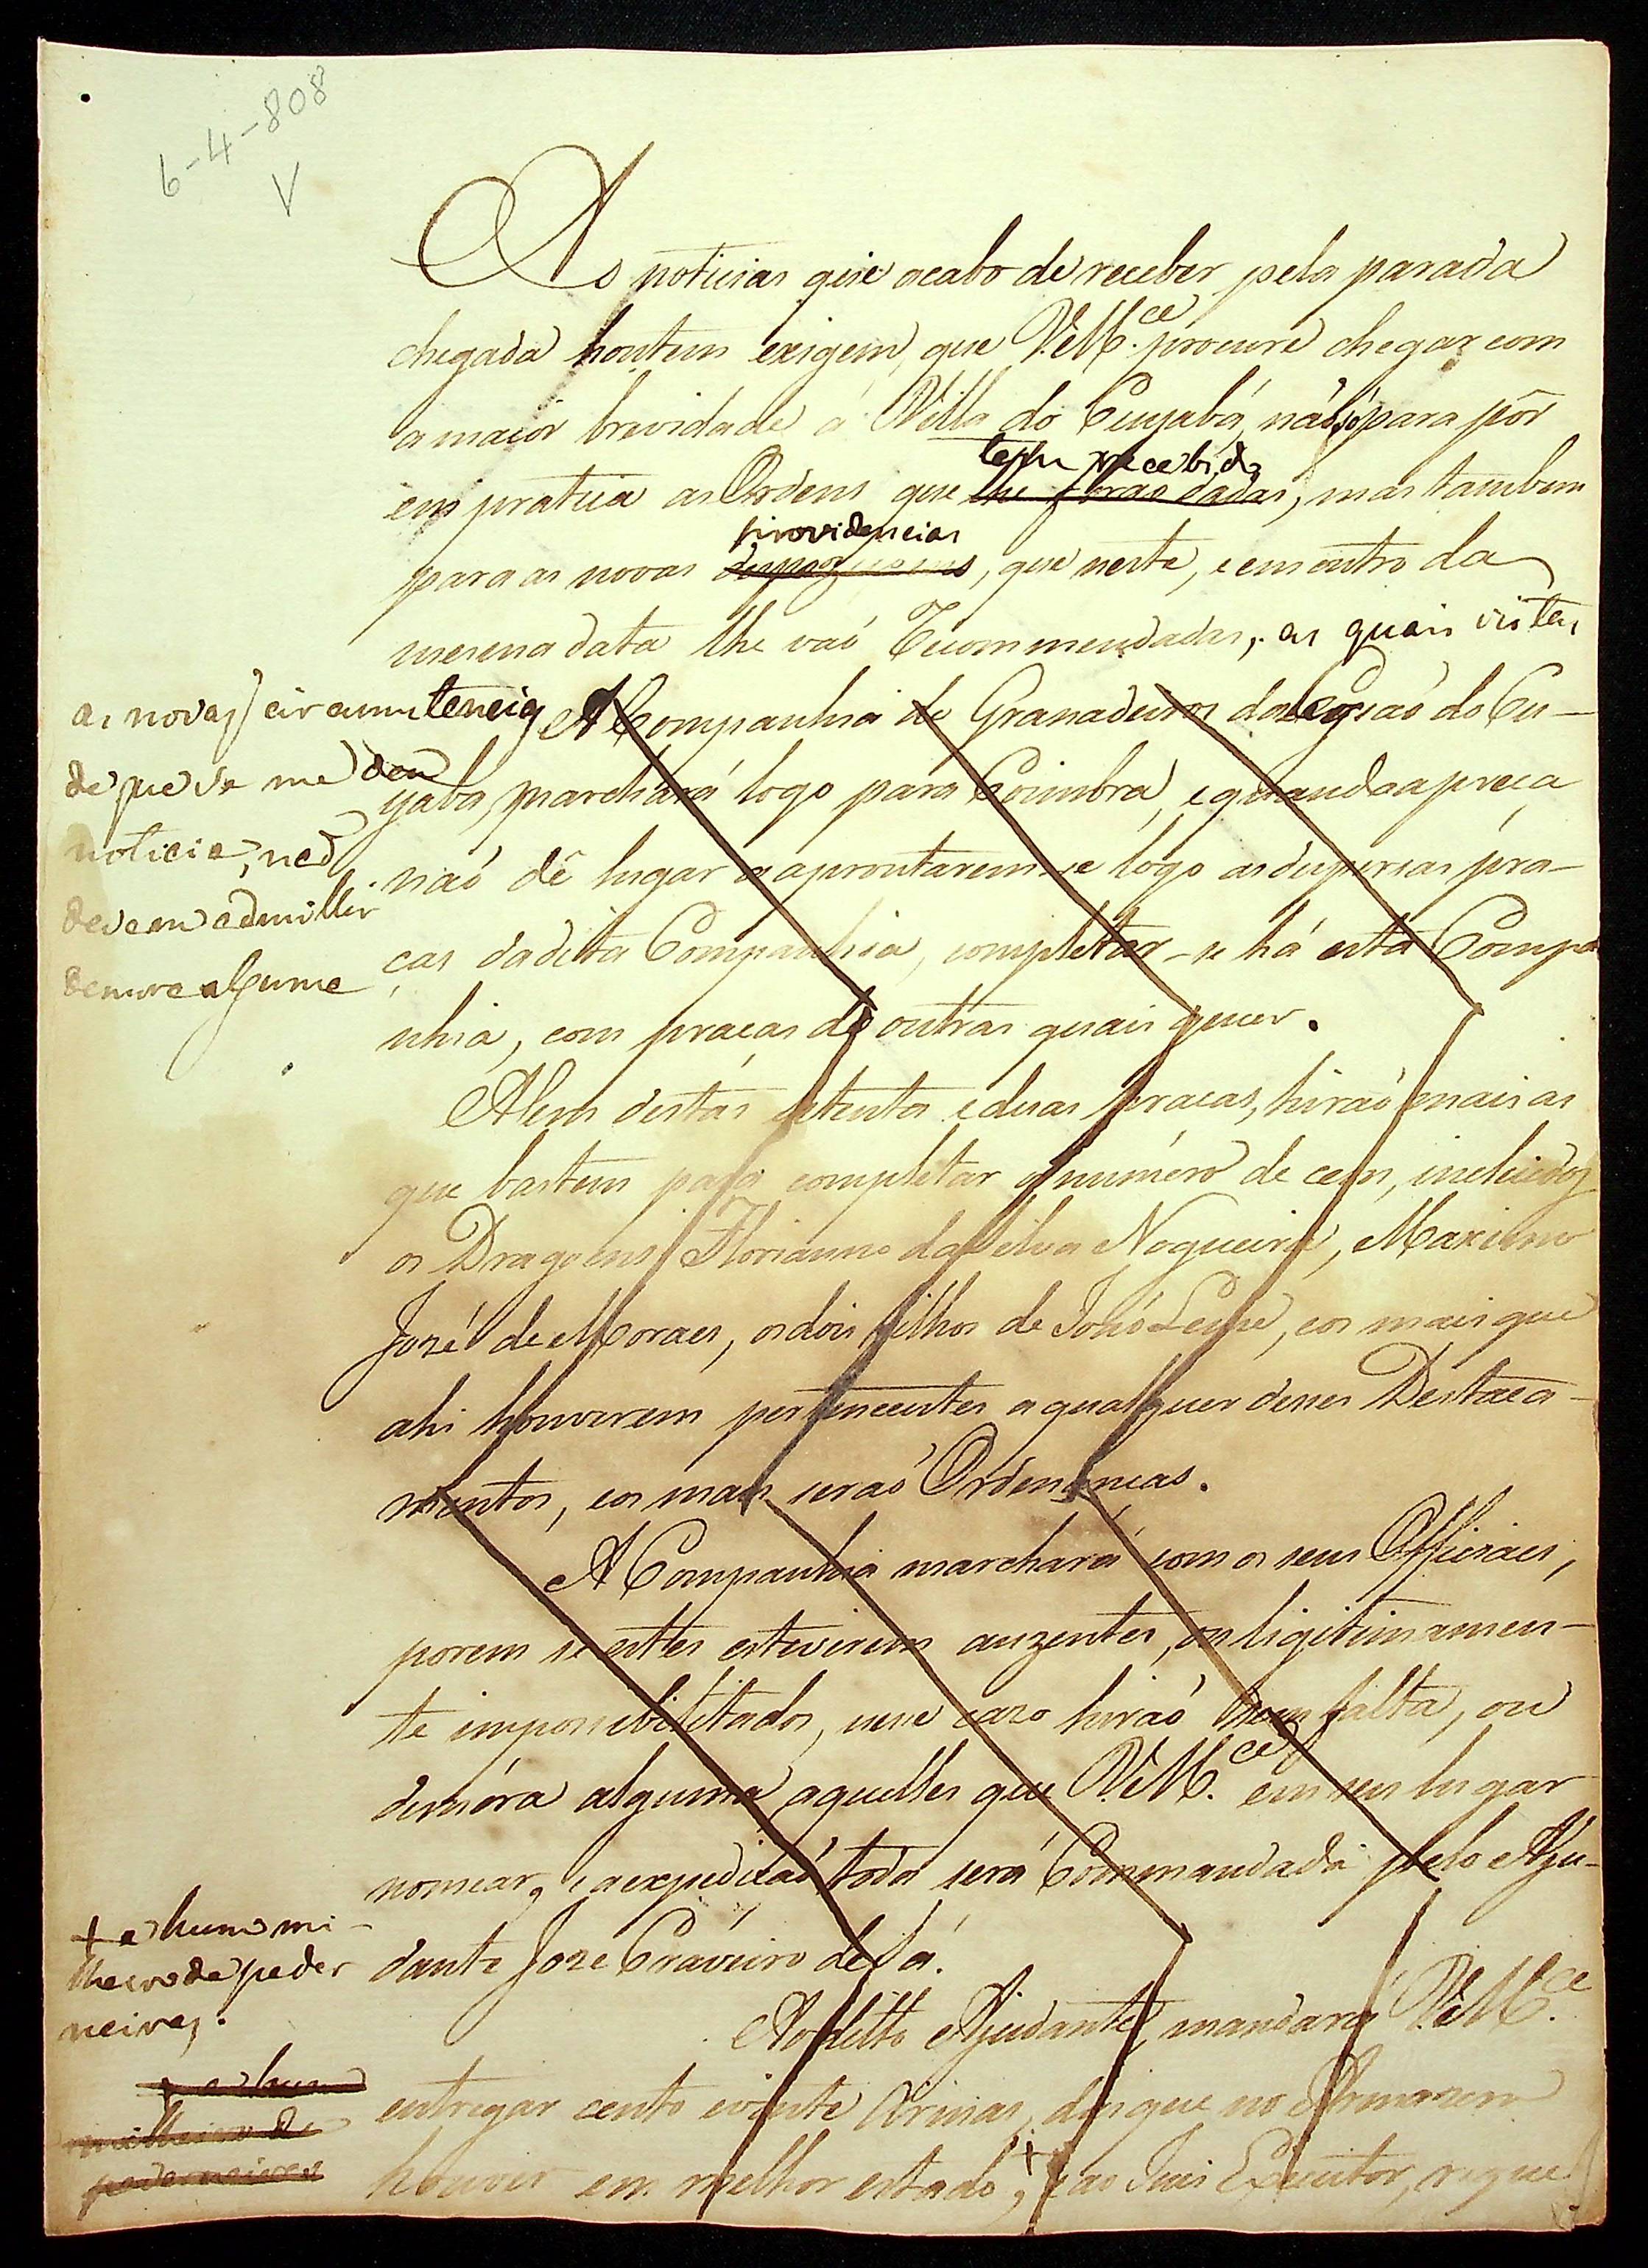 6-4-808
V
As noticias que acabo de receber pela parada
chegada hontem exigem, que V.M.ce procure chegar com
a maior brevidade á Villa do Cuyabá, não só para pôr
tem recebido
em pratica as Ordens que lhe forao dadas, mas tambem
providencias
para as novas, que nesta, e em outro da
mesma data lhe vaó Recommendadas, as quais vistas
as novas circumstencias
de que se me deu
noticia, naó
devem admittir
demora alguma
A Companhia de Granadeiros da Legiaó do Cu-
yabá, marchará logo para Coimbra, e quando a preça
naó dê lugar a aprontarem-se logo as dispersas pra-
ças da dita Companhia, completar-se há esta Compa
nhia, com praças de outras quais quer.
Alem destas setenta e duas praças, hiraó mais as
que bastem para completar o numero de cem, incluidos
os Dragoens Florianno da Silva Nogueira, Maximo
José de Moraes, os dois filhos de Joaó Leme, e os mais que
ahi houverem pertencentes a qualquer desses Destaca-
mentos, e os mais seraó Ordenanças.
A Companhia marchará com os seus Officiaes,
porem se estes estiverem auzentes, ou ligitimamen-
te impossibilitados, nesse cazo hiraó sem falta, ou
demóra alguma aquelles que V.M.ce em seu lugar
nomear, e a expediçaó toda será Commandada pelo Aju-
dante Joze Craveiro de Sá.
Ao ditto Ajudante, mandará V.M.ce
entregar cento e vinte Armas, das que no Armazem
houver em melhor estado, + e ao Juis Executor, reque
+ e hum mi-
lheiro de peder
neiras.
+ e hum
milheiro de
pederneiras